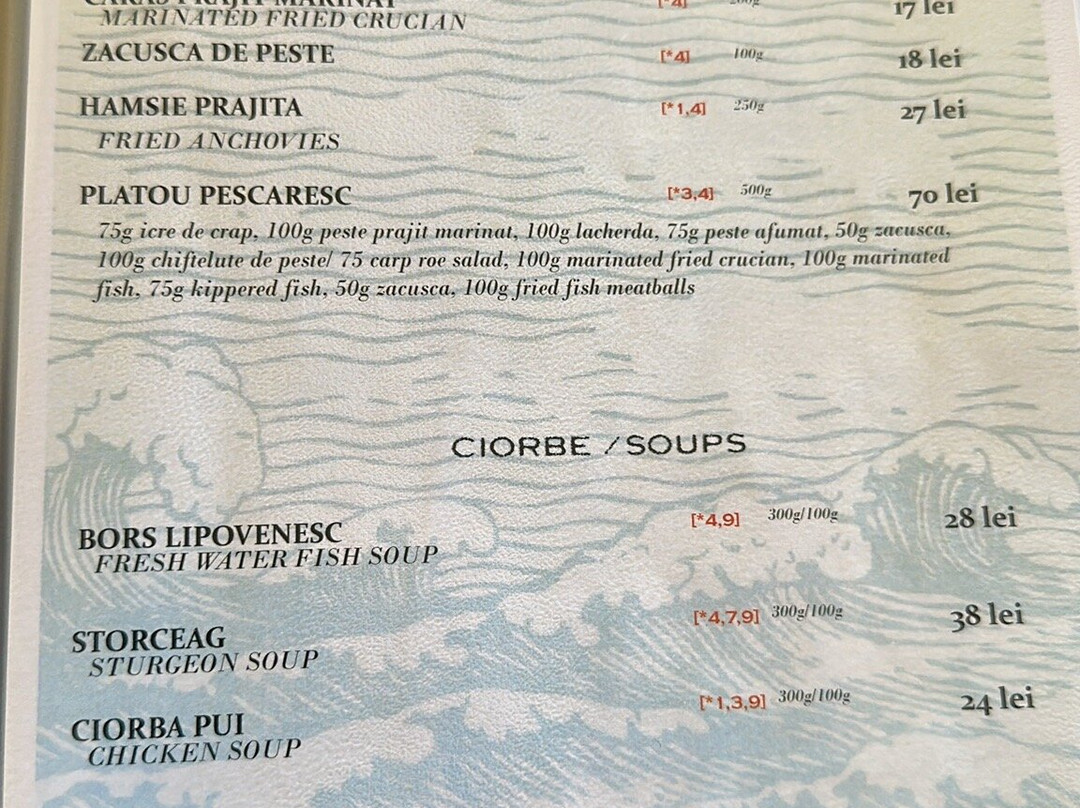 CARAS PRAJIT MARINAT [*4] 200g 17 lei
MARINATED FRIED CRUCIAN
ZACUSCA DE PESTE [*4] 100g 18 lei
HAMSIE PRAJITA [*1,4] 250g 27 lei
FRIED ANCHOVIES
PLATOU PESCARESC [*3,4] 500g 70 lei
75g icre de crap, 100g peste prajit marinat, 100g lacherda, 75g peste afumat, 50g zacusca,
100g chiftelute de peste/ 75 carp roe salad, 100g marinated fried crucian, 100g marinated
fish, 75g kippered fish, 50g zacusca, 100g fried fish meatballs
CIORBE / SOUPS
BORS LIPOVENESC [*4,9] 300g/100g 28 lei
FRESH WATER FISH SOUP
STORCEAG [*4,7,9] 300g/100g 38 lei
STURGEON SOUP
CIORBA PUI [*1,3,9] 300g/100g 24 lei
CHICKEN SOUP